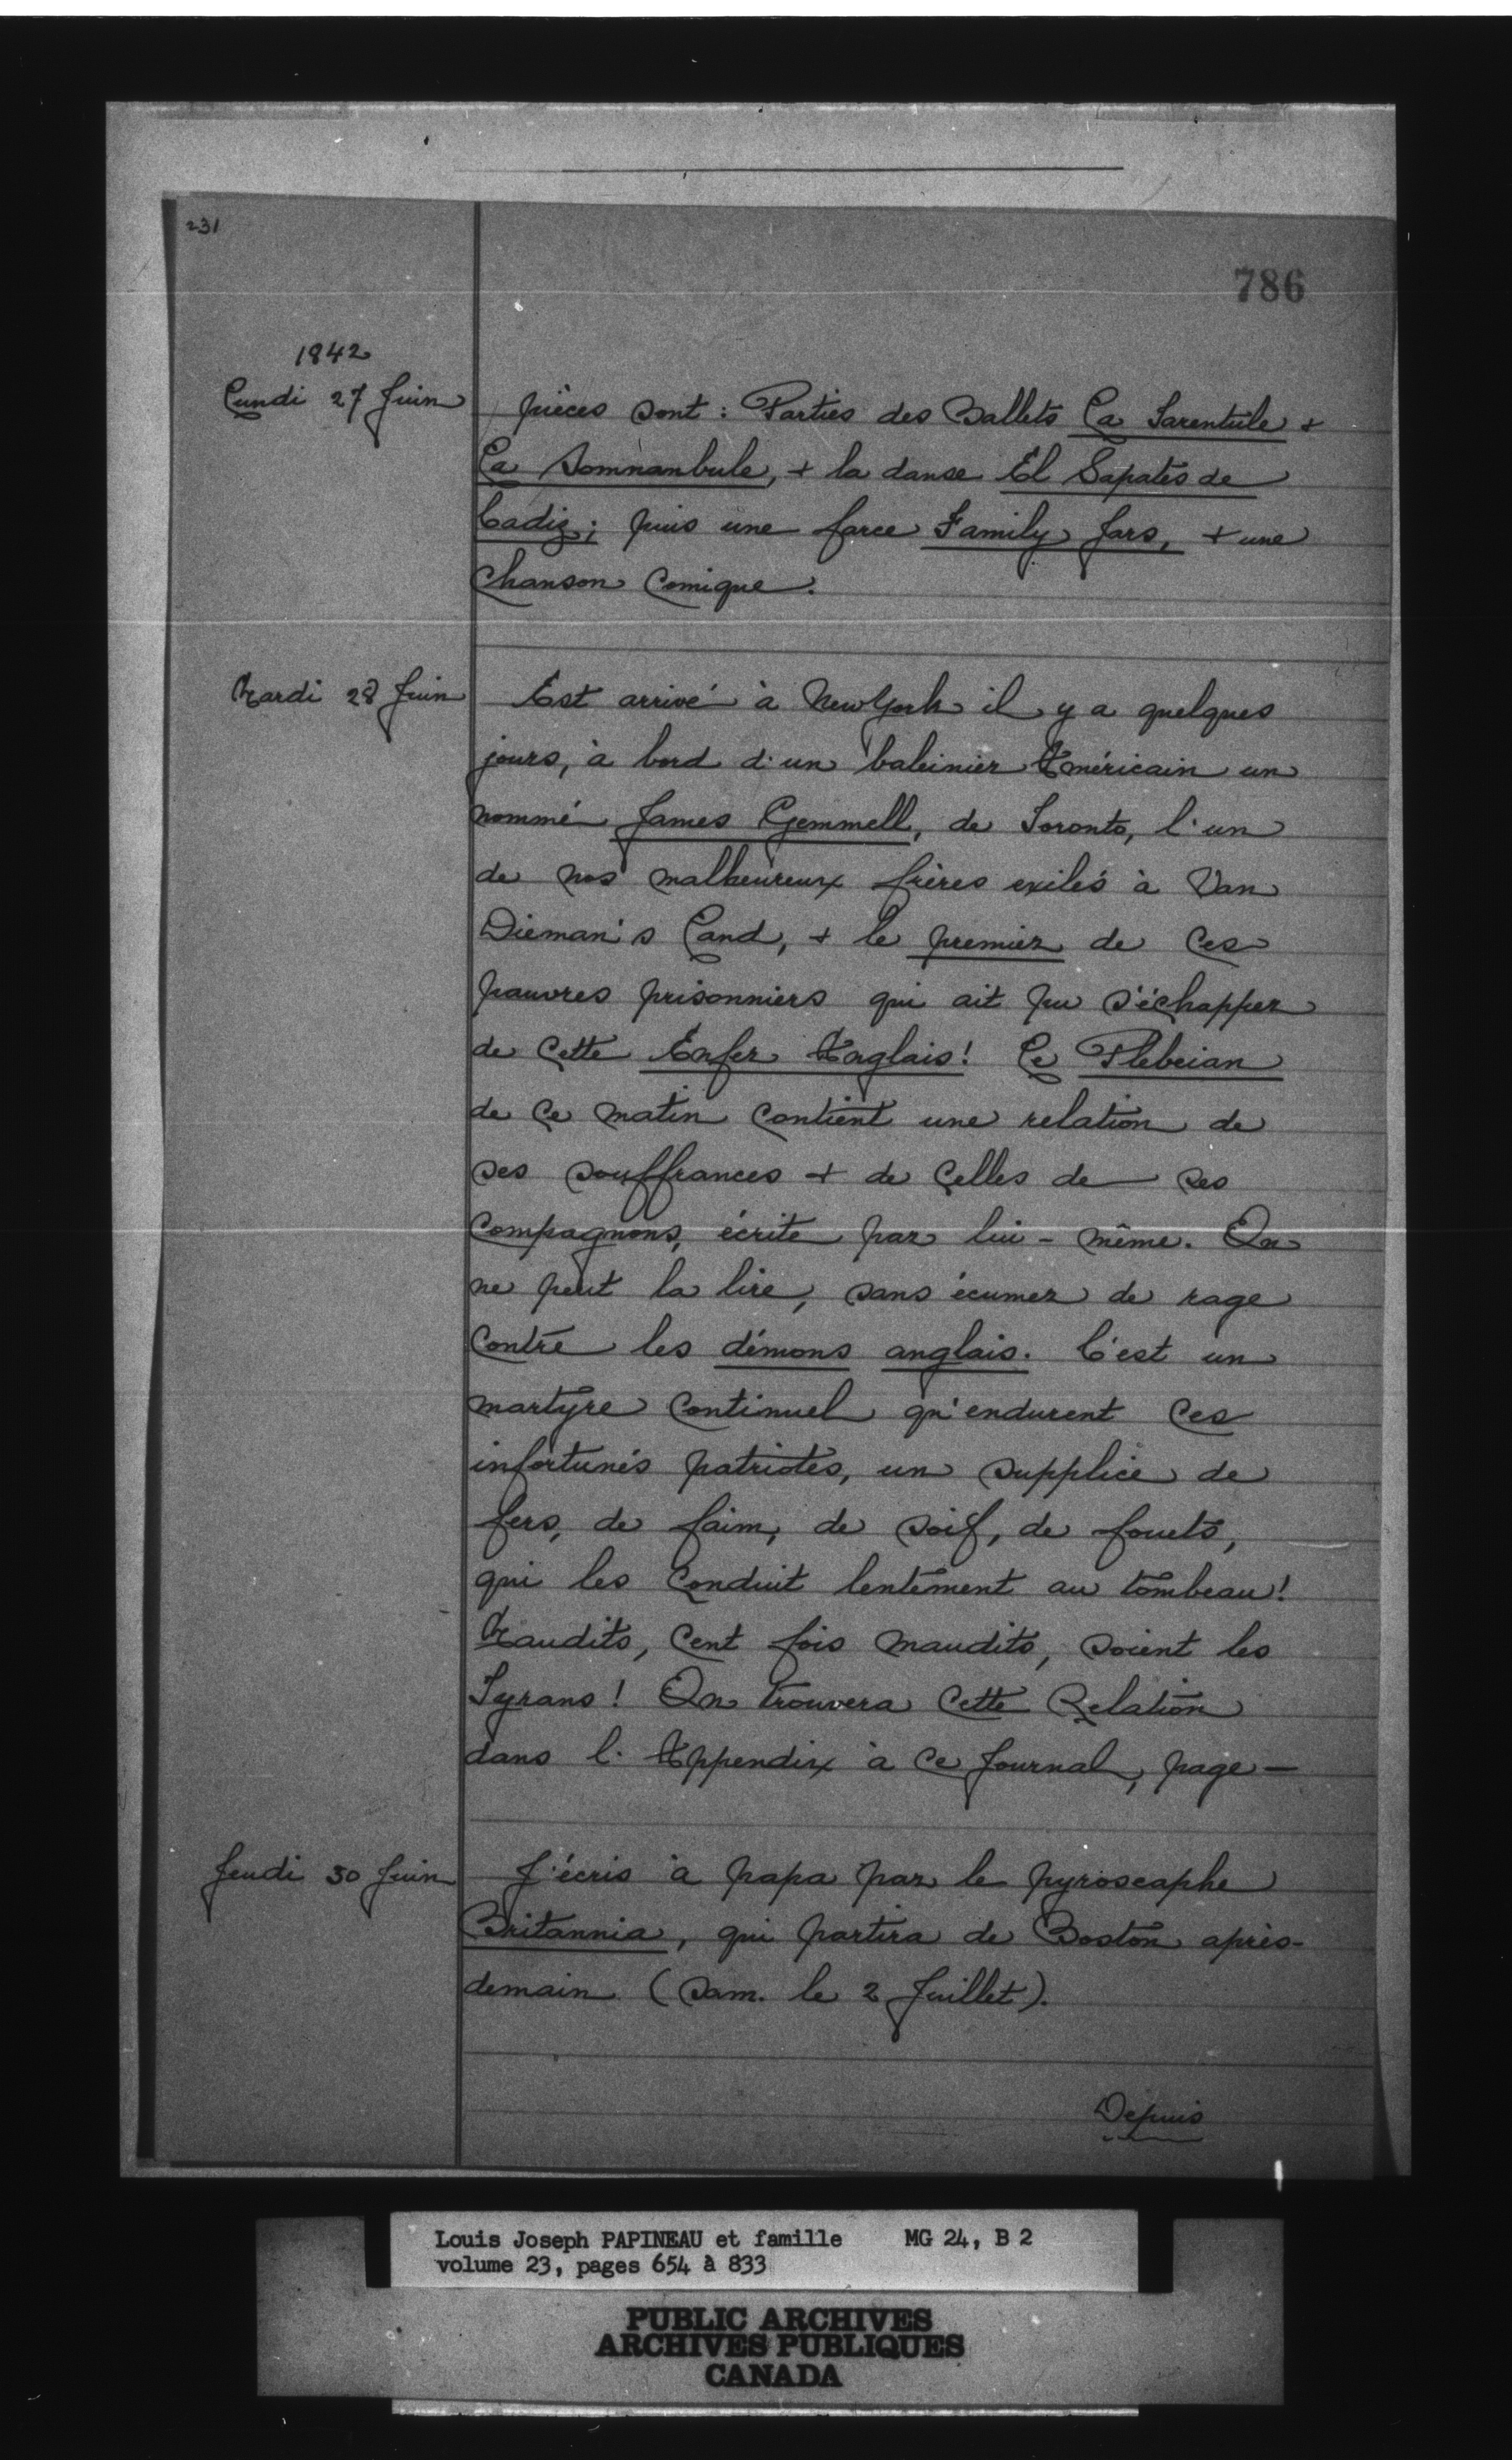 231
786
1842
Lundi 27 Juin
pièces sont : Parties des Ballets La Tarentule +
La Somnanbule, + la danse El Sapatéo de
Cadiz ; puis une farce Family Jars, + une
chanson comique.
Mardi 28 Juin
Est arrivé à New York il y a quelques
jours, à bord d'un baleinier Américain un
nommé James Gemmell, de Toronto, l'un
de nos malheureux frères exilés à Van
Dieman's Land, + le premier de ces
pauvres prisonniers qui ait pu s'échapper
de cette Enfer Anglais! Le Plebeian
de ce matin contient une relation de
ses souffrances + de celles de ses
compagnons, écrite par lui-même. On
ne peut la lire, sans écumer de rage
contre les démons anglais. C'est un
martyre continuel qu'endurent ces
infortunés patriotes, un supplice de
fers, de faim, de soif, de fouets,
qui les conduit lentement au tombeau!
Maudits, cent fois maudits, soient les
Tyrans! On trouvera cette Relation
dans l'Appendix à ce Journal, page —
Jeudi 30 Juin
J'écris à papa par le pyroscaphe
Britannia, qui partira de Boston après-
demain (sam. le 2 Juillet).
Depuis
Louis Joseph PAPINEAU et famille MG 24, B 2
volume 23, pages 654 à 833
PUBLIC ARCHIVES
ARCHIVES PUBLIQUES
CANADA